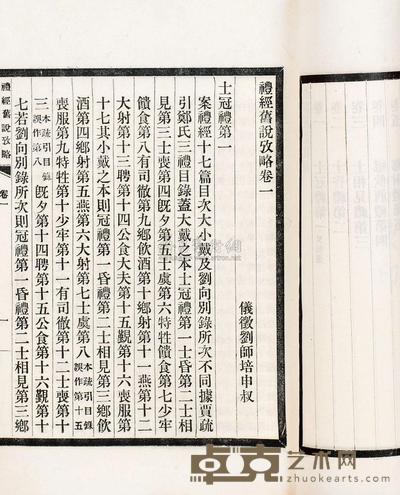 禮經舊說攷略卷一
儀徵劉師培申叔
士冠禮第一
案禮經十七篇目次大小戴及劉向別錄所次不同據賈疏
引鄭氏三禮目錄蓋大戴之本士冠禮第一士昏第二士相
見第三士喪第四旣夕第五士虞第六特牲饋食第七少牢
饋食第八有司徹第九鄉飲酒第十鄉射第十一燕第十二
大射第十三聘第十四公食大夫第十五覲第十六喪服第
十七其小戴之本則冠禮第一昏禮第二士相見第三鄉飲
酒第四鄉射第五燕第六大射第七士虞第八本疏引目錄誤作第十五
喪服第九特牲第十少牢第十一有司徹第十二士喪第十
三本疏引目錄誤作第八旣夕第十四聘第十五公食第十六覲第十
七若劉向別錄所次則冠禮第一昏禮第二士相見第三鄉
禮經舊說攷略
卷一
一
卓克艺术网
www.zhuokearts.com